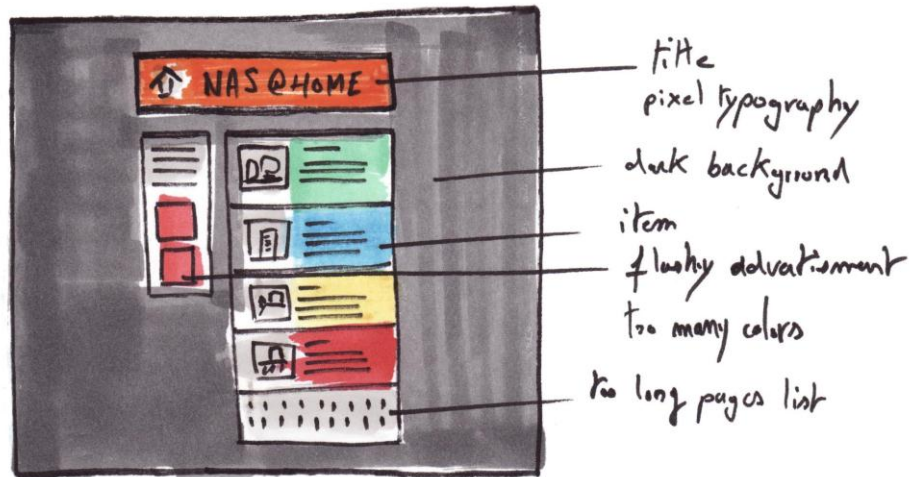 NAS@HOME
title
pixel typography
dark background
item
flashy advertisment
too many colors
too long pages list